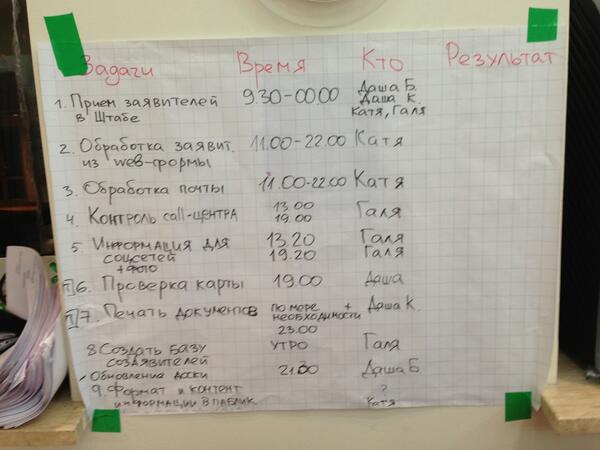 Задачи Время Кто Результат
1. Прием заявителей 9.30-00.00 Даша Б.
в Штабе Даша К.
Катя, Галя
2. Обработка заявит. 11.00-22.00 Катя
из web-формы
3. Обработка почты 11.00-22.00 Катя
4. Контроль call-центра 13.00 Галя
19.00
5. Информация для 13.20 Галя
соцсетей 19.20 Галя
+ фото
6. Проверка карты 19.00 Даша
7. Печать документов по мере + Даша К.
необходимости
23.00
8 Создать базу утро Галя
создявителей
Обновление доски 21.30 Даша Б
9. Формат и контент ?
информации в паблик Катя